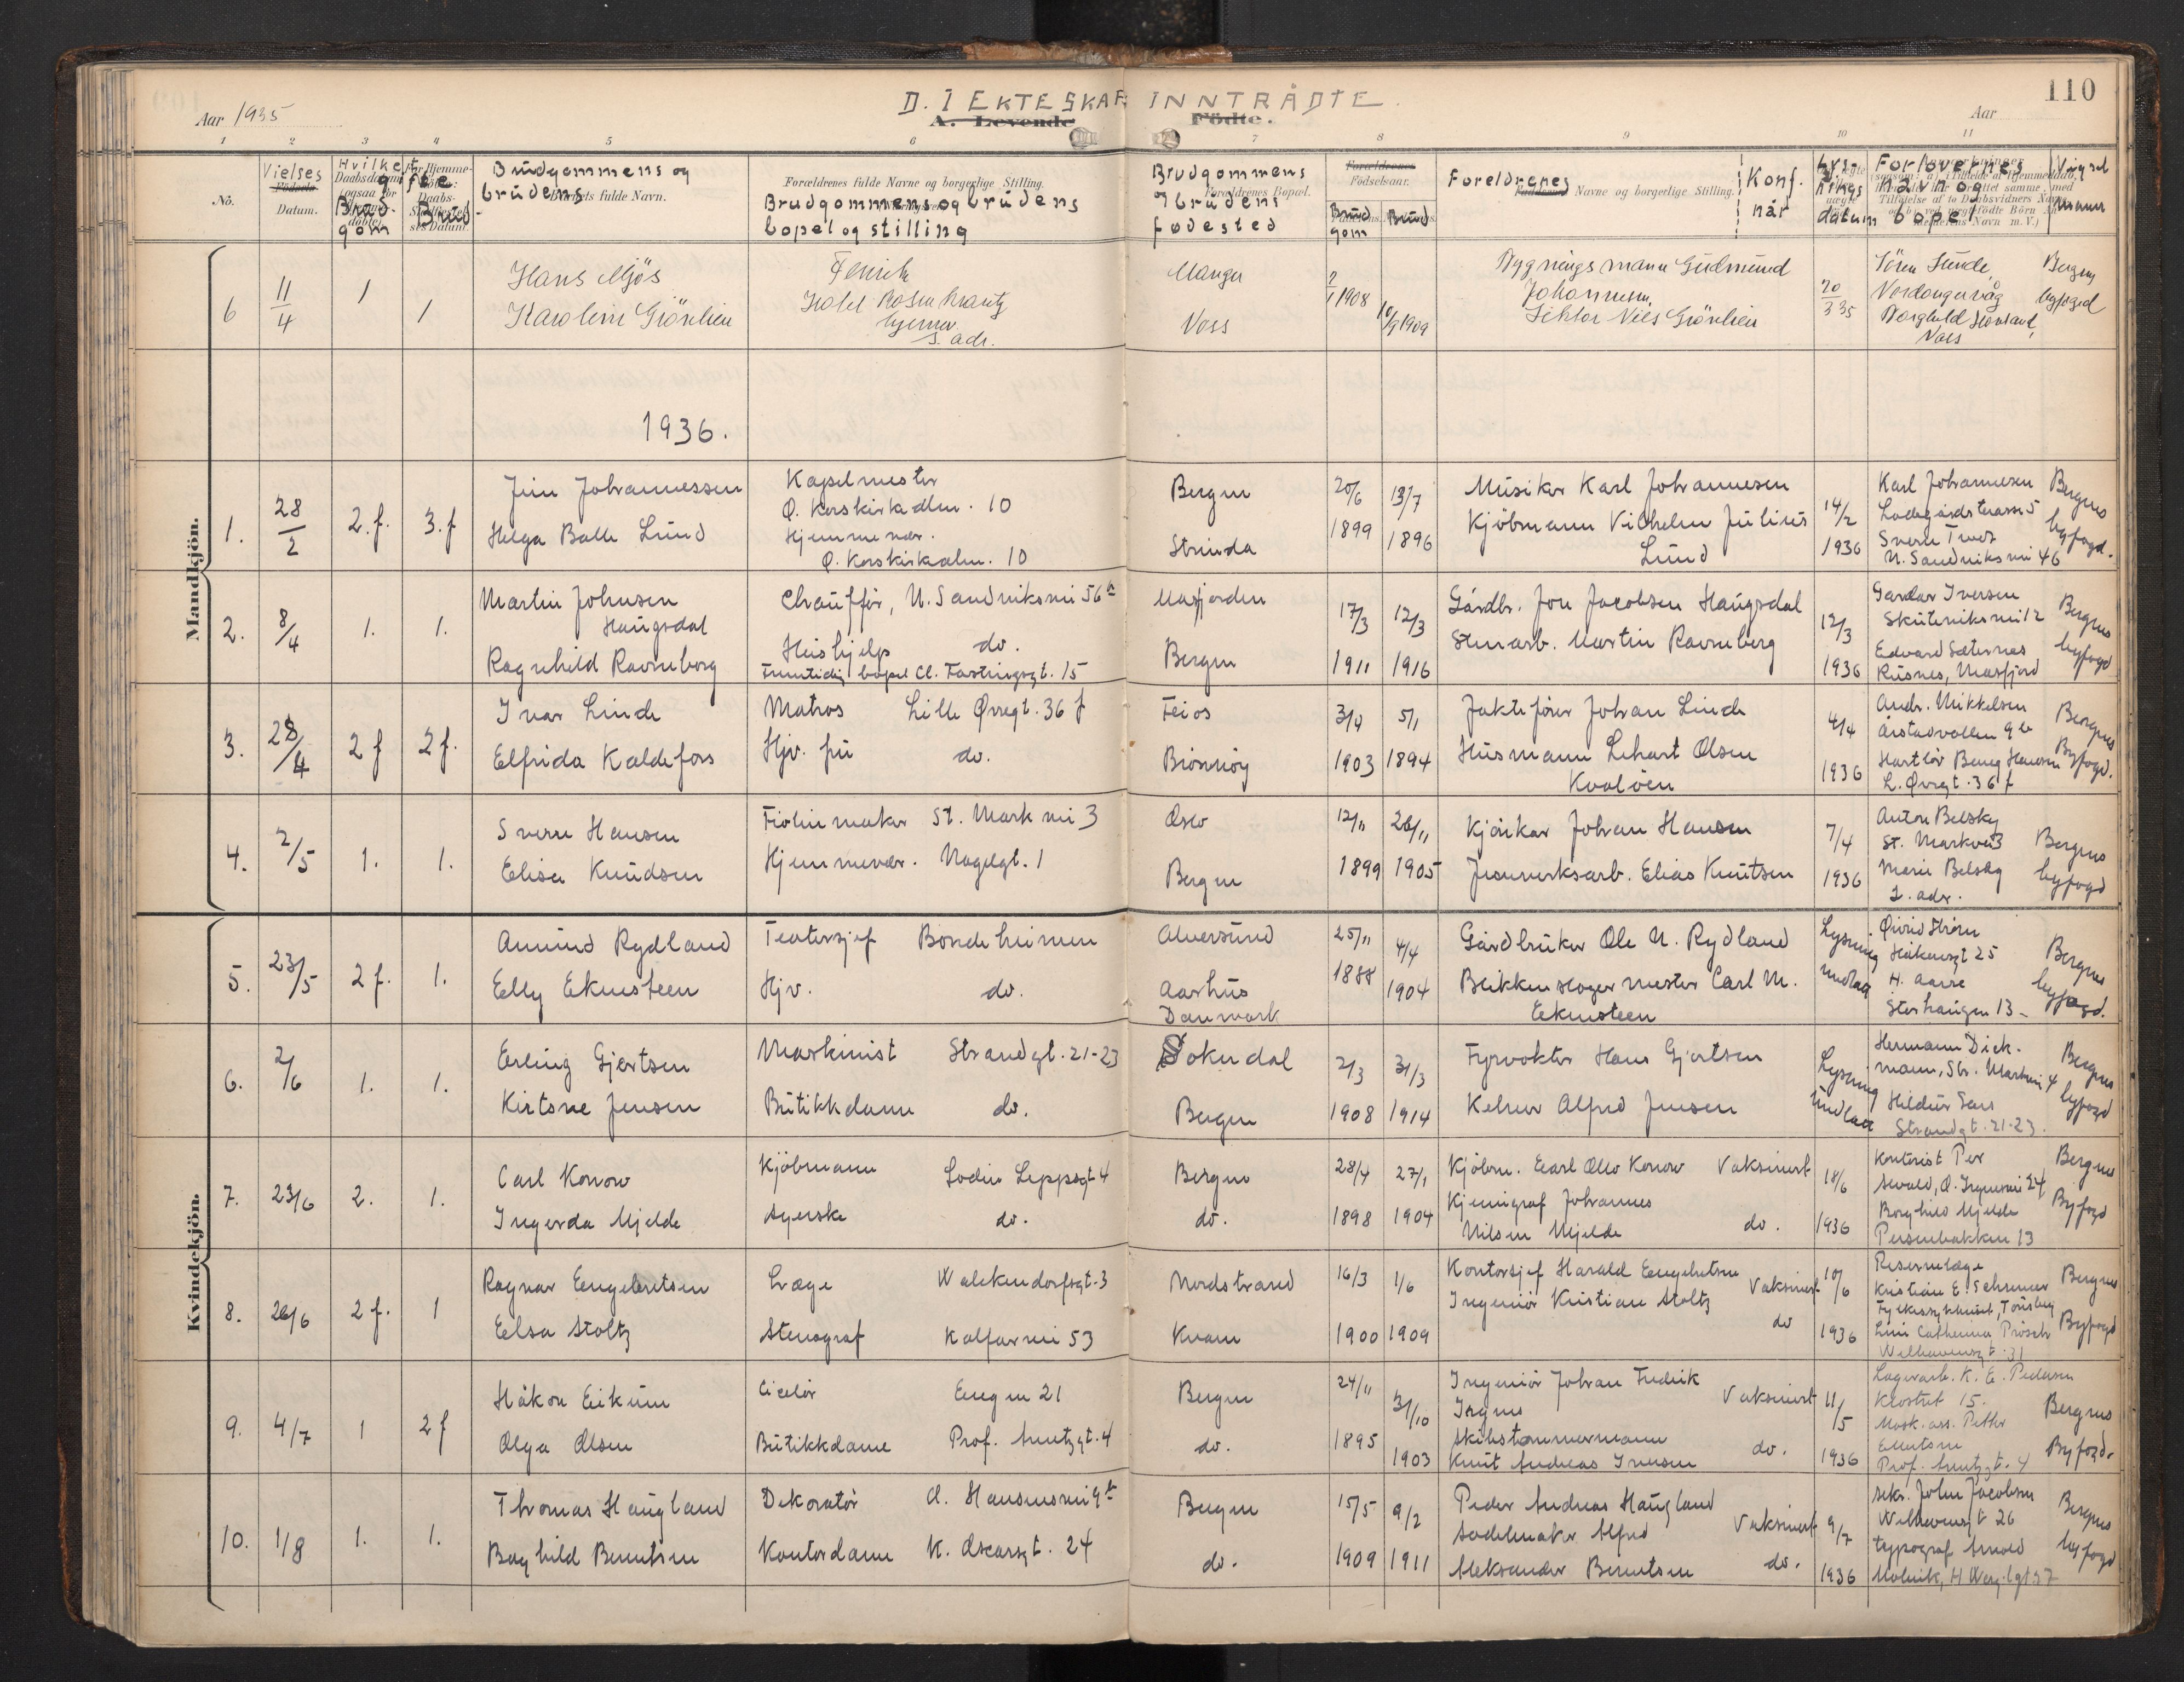 D. I EKTESKAP INNTRÅDTE.
A. Levende Födte.
110
Aar 1935
Aar
1 2 3 4 5 6 7 8 9 10 11
No.
Vielses
Datum.
Hvilket gifte
Brudgom
Brud
Brudgommens og
brudens
Barnets fulde Navn.
Forældrenes fulde Navne og borgerlige Stilling.
Brudgommens og brudens
bopel og stilling
Brudgommens
og brudens
fødested
Forældrenes Bopæl.
Forældrenes
Födselsaar.
Brud
gom
Brud
Foreldrenes
Navne og borgerlige Stilling.
Konf.
når
Lys-
nings
datum
Forlovernes
navn og
bopel
Mandkjön.
Kvindekjön.
6 11/4 1 1
Hans Mjös
Karoline Grönlien
Fenrik
Hotel Rosenkrantz
hjemmev.
s. adr.
Manger
Voss
2/1 1908
10/9 1909
Bygningsmann Gudmund
Johannesen
Lektor Nils Grönlien
20/3 35
Sören Hunde,
Nordangervåg
Borghild
Voss
Bergens
byfogd
1936.
1. 28/2 2.f. 3.f
Jim Johannessen
Helga Balle Lund
Kapelmester
Ø. Korskirkealm. 10
Hjemmevær.
Ø. Korskirkealm. 10
Bergen
Strinda
20/6 1899
13/7 1896
Musiker Karl Johannesen
Kjöbmann Vilhelm Julius
Lund
14/2 1936
Karl Johannesen
Ladegårdsterassen 5
Sverre Tvedt
N. Sandviksvei 46
Bergens
byfogd.
2. 8/4 1. 1.
Martin Johnsen
Haugsdal
Ragnhild Ravneberg
Chauffør, N. Sandviksvei 56a
Hushjelp do.
Fremtidig bopel Cl. Fastingsgt. 15
Masfjorden
Bergen
17/3 1911
12/3 1916
Gårdbr. Jon Jacobsen Haugsdal
Stenarb. Martin Ravneberg
12/3 1936
Gardar Iversen
Skuteviksvei 12
Edvard Sæternes
Risnes, Masfjord
Bergens
byfogd
3. 28/4 2 f 2 f.
Ivar Linde
Elfrida Kaldefoss
Matros Lille Øvregt. 36 f
Hjv. fru do.
Feios
Brönnöy
3/4 1903
5/1 1894
Jaktefører Johan Linde
Husmann Lehart Olsen
Kvalöen
4/4 1936
Andr. Mikkelsen
Årstadvollen 9 b
L. Øvregt. 36 f
Bergens
Byfogd.
4. 2/5 1. 1.
Sverre Hansen
Elise Knudsen
Fiolinmaker St. Markevei 3
Hjemmevær. Nagelgt. 1
Oslo
Bergen
12/11 1899
26/11 1905
Kjörekar Johan Hansen
Jernverksarb. Elias Knutsen
7/4 1936
Anton Belsky
St. Markvei 3
Marie Belsky
s. adr.
Bergens
byfogd
5. 23/5 2 f. 1.
Amund Rydland
Elly Ekensteen
Teatersjef Bondeheimen
Hjv. do.
Alversund
Aarhus
Danmark
25/11 1888
4/4 1904
Gårdbruker Ole N. Rydland
Blikkenslagermester Carl M.
Eekensteen
Lysning
undlatt
Øivind Strøm
Håkonsgt 25
H. Aarre
Storhaugen 13
Bergens
byfogd.
6. 2/6 1. 1.
Erling Gjertsen
Kirtsne Jensen
Maskinist Strandgt. 21-23
Butikkdame do.
Sokndal
Bergen
2/3 1908
31/3 1914
Fyrvokter Hans Gjertsen
Kelner Alfred Jensen
Lysning
undlatt
Hermann Dick-
mann, Str. Markvei 4
Hildur
Strandgt. 21-23.
Bergens
byfogd
7. 23/6 2. 1.
Carl Konow
Ingerda Mjelde
Kjöbmann Lodin Leppsgt 4
Syerske do.
Bergen
do.
28/4 1898
27/1 1904
Kjöbm. Carl Ollo Konow Vaksinert
Kjemigraf Johannes
Nilsen Mjelde do.
18/6 1936
Kontorist Per
Borghild Mjelde
Persenbakken 13
Bergens
Byfogd
8. 26/6 2 f. 1
Ragnar Engebretsen
Elsa Stoltz
Læge Walckendorfsgt. 3
Stenograf Kalfarvei 53
Nordstrand
Kvam
16/3 1900
1/6 1909
Kontorsjef Harald Engebretsen Vaksinert
Ingeniör Kristian Stoltz do
10/6 1936
Reservelæge
Kristian E. Schreuder
Fylkessykehuset, Tönsberg
Welhavensgt. 31
Bergens
Byfogd
9. 4/7 1 2 f
Håkon Eikum
Olga Olsen
Ciselör Engen 21
Butikkdame Prof. Hmtzgt. 4
Bergen
do.
24/11 1895
31/10 1903
Ingeniör Johan Fredrik Vaksinert
Skibstømmermann
Knut Andreas Iversen do.
11/5 1936
Lagerarb. K. E. Pedersen
Klostret 15.
Mask.ass. Petter
Bergens
Byfogd.
10. 1/8 1. 1.
Thomas Haugland
Borghild Berntsen
Dekoratör A. Hansensvei 9b
Kontordame K. Oscarsgt. 24
Bergen
do.
15/5 1909
9/2 1911
Peder Andreas Haugland Vaksinert
Sadelmaker Alfred
Aleksander Berntsen do.
9/7 1936
seks. John Jacobsen
Welhavensgt 26
typograf Arnold
Molvik, H Werg.lgt 27
Bergens
byfogd